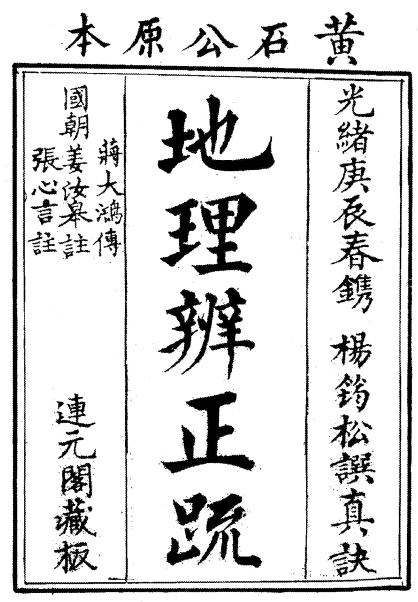 黃石公原本
光緒庚辰春鐫 楊筠松譔真訣
地理辨正䟽
蔣大鴻傳
國朝姜汝皋註
張心言註
連元閣藏板